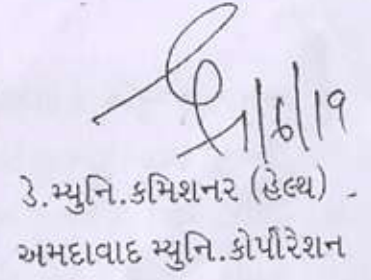 1/6/19
ડે.મ્યુનિ.કમિશનર (હેલ્થ)
અમદાવાદ મ્યુનિ.કોર્પોરેશન